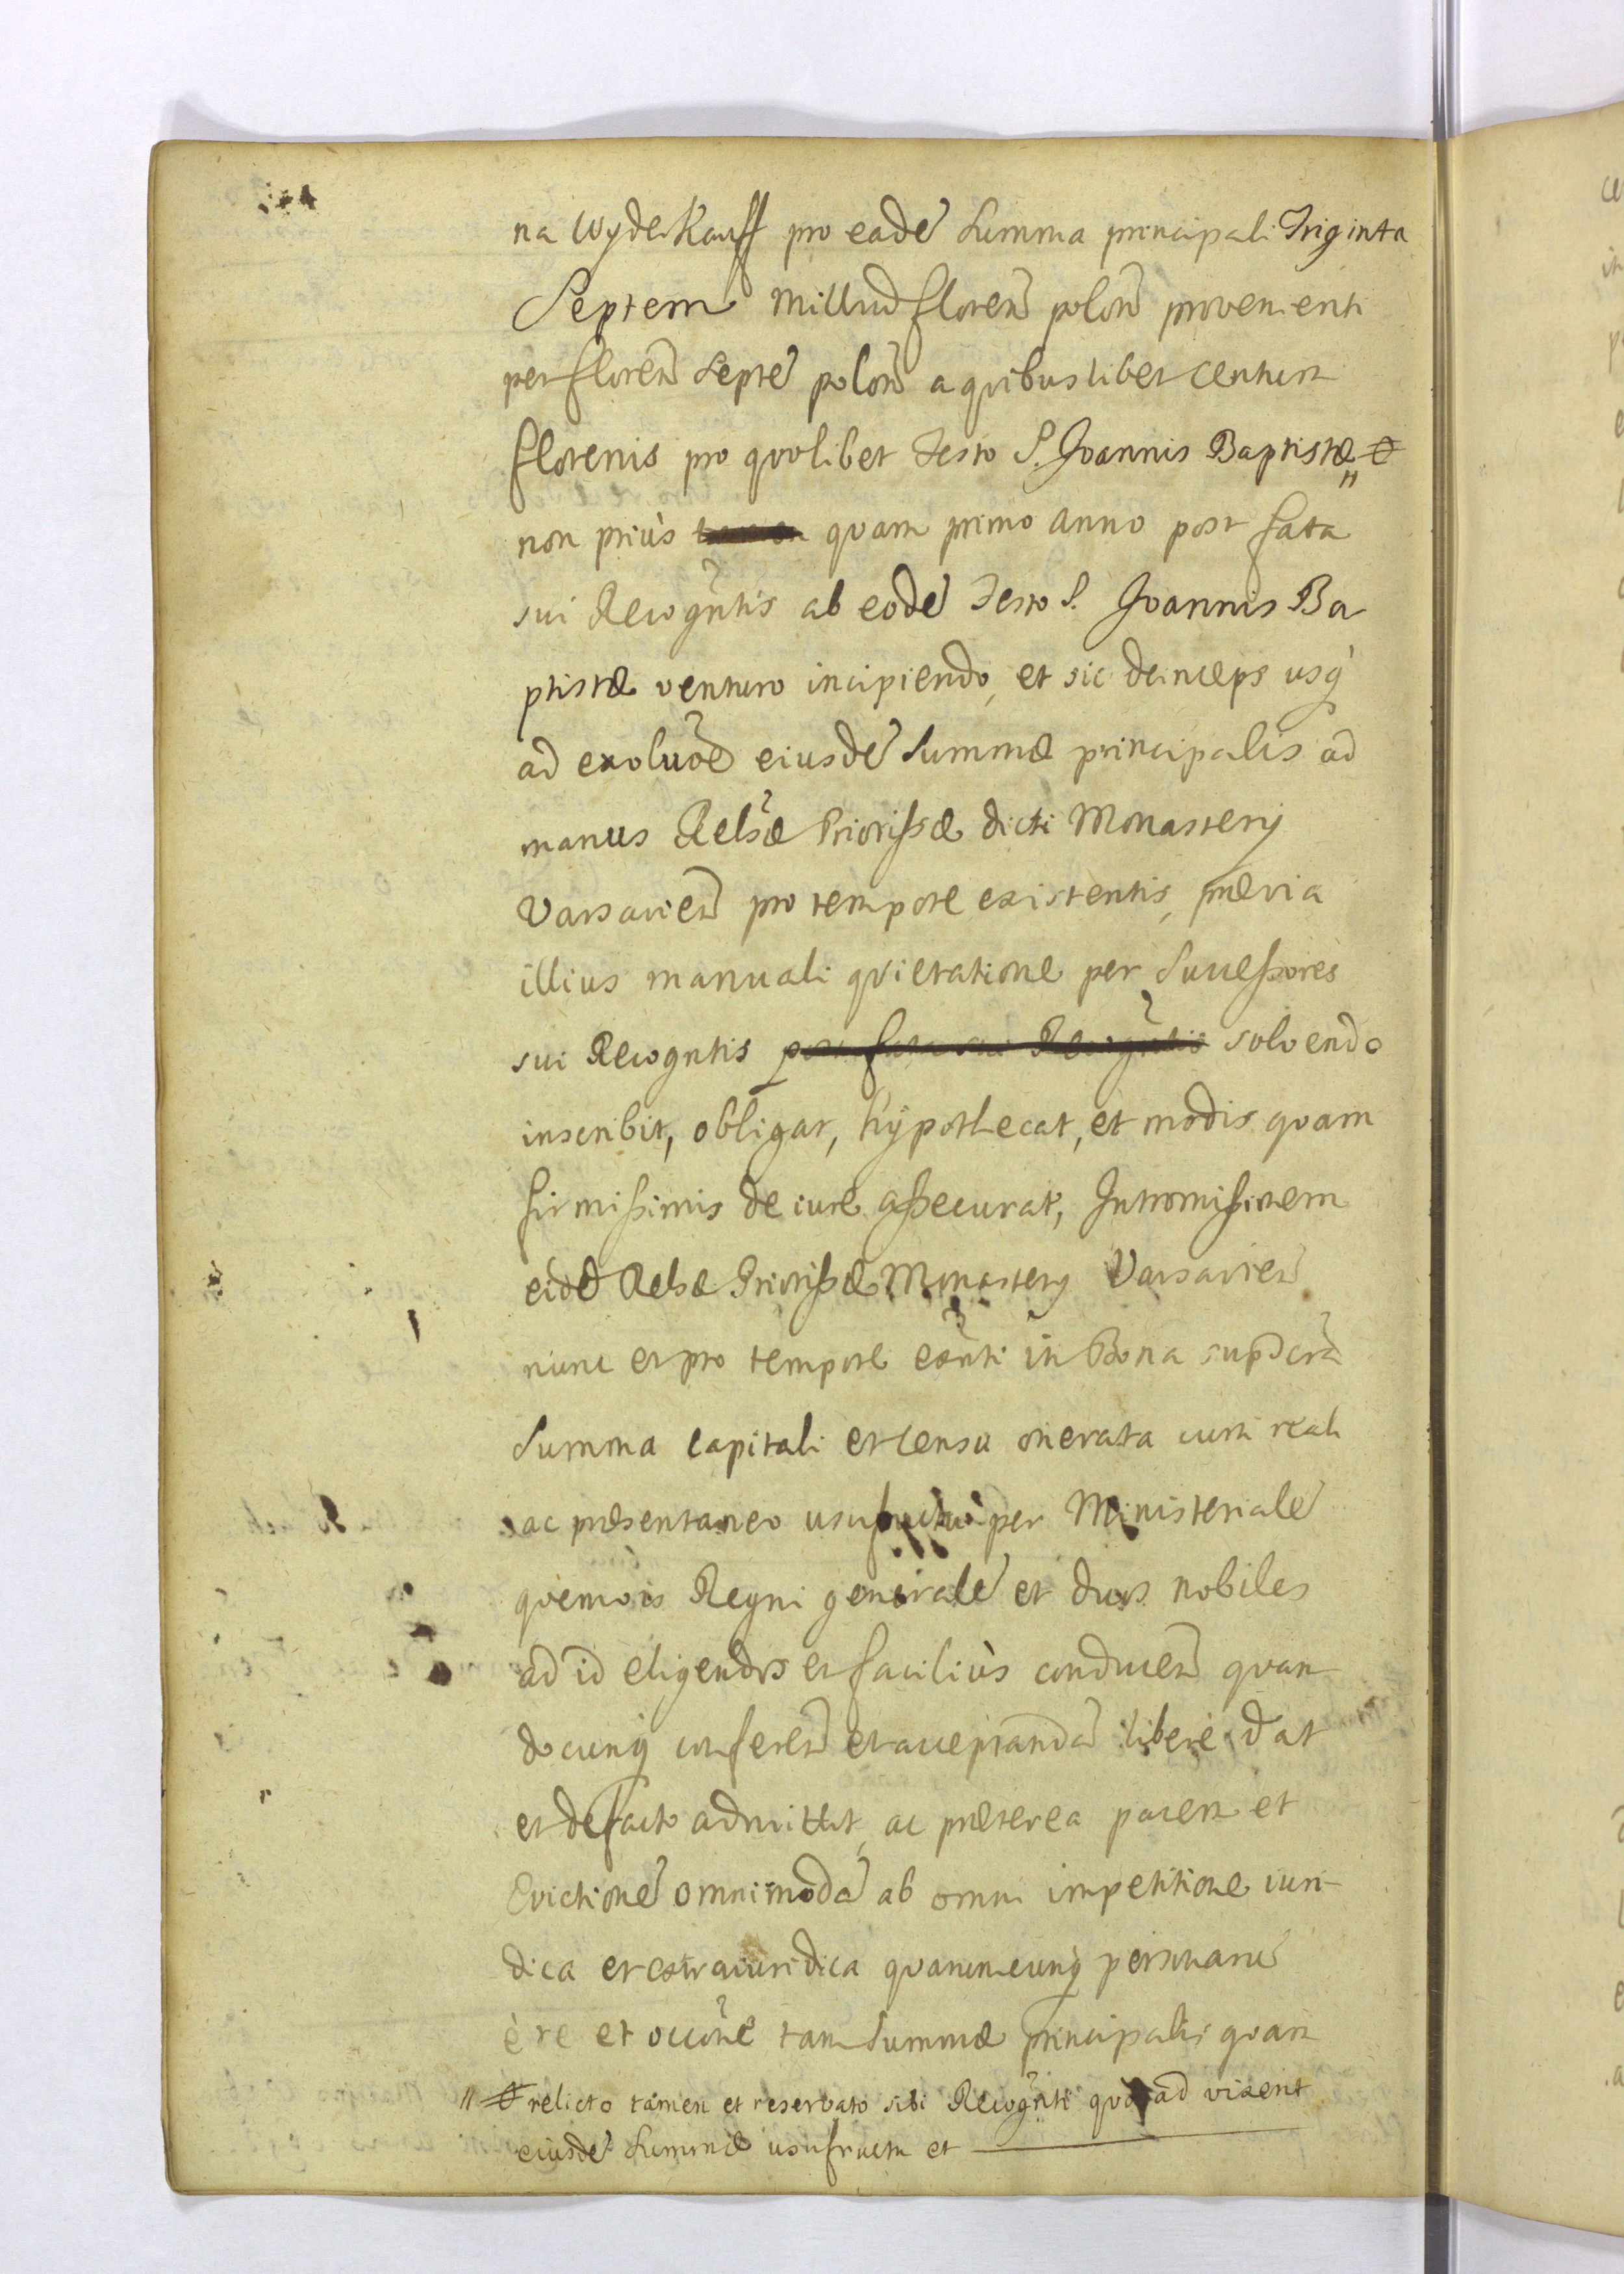 na Wyderkauff pro eadē Summa principali Triginta
Septem Milliūd florenō polonō provenienti
per florenō septē polonō a quibuslibet centum
florenis pro quolibet Festo S. Joannis Baptistæ #
non priùs quam primo anno post fata
sui Recogn̄tis ab eodē Festo S. Joannis Ba
ptistæ venturo incipiendo, et sic deinceps usq̀
ad exolūōē eiusdē Summæ principalis ad
manus Relsæ Priorissæ dicti Monasterij
Varsavien̄ pro tempore existentis, prævia
illius manuali quietatione per Successores
sui Recogntis post fata sui Recogn̄tis solvendo
inscribit, obligat, hÿpothecat, et modis quam
firmissimis de iure assecurat, Intromissionem
eidē Relsæ Priorissæ Monasterij Varsavien̄
nunc et pro tempore exn̄ti in Bona supdcta
Summa capitali et censu onerata cum reali
ac præsentaneo usufructu per Ministerialē
quemvis Regni generalē et duos nobiles
ad id eligendos et faciliùs conducen̄ quan-
documq̨ conferen̄ et acceptandā liberè dat
et de facto admittit, ac præterea pacem et
Evictionē omnimodā ab omni impetitione iuri-
dica et extraiuridica quarumcunq̨ personarū
è re et occōnē tam Summæ principalis quam
" # relicto tamen et reservato sibi Recogn̄ti quoad vixerit
eiusdē Summæ usufructu et